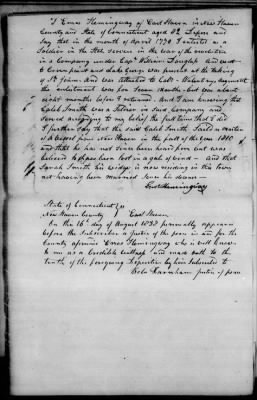 I Enos Hemingway of East Haven in New Haven
County and State of Connecticut aged 82 years and
Say that in the month of April 1776 I entered as a
Soldier in the service in the war of the revolution
in a Company under Capt William Douglass and went
to Crown point and Lake George was present at the taking
of St Johns and was attached to Colo Waterbury Regiment
the enlistment was for seven months but was about
eight months before I returned. And I am knowing that
Caleb Smith was a soldier in said Company and
served according to my belief the full time that I did
I further say that the said Caleb Smith sailed
a vessel from New Haven in the fall of the year
and that he has not since been heard from but was
believed to have been lost in a gale of wind — And that
Sarah Smith his widow is now residing in this town
not having been married since his decease —
Enos Hemingway
State of Connecticut
New Haven County } East Haven
On the 16th day of August personally appeared
before the Subscriber a justice of the peace in and for the
County aforesaid Enos Hemingway who is well known
to me as a credible witness and made oath to the
truth of the foregoing deposition by him subscribed to
Farnham justice of peace